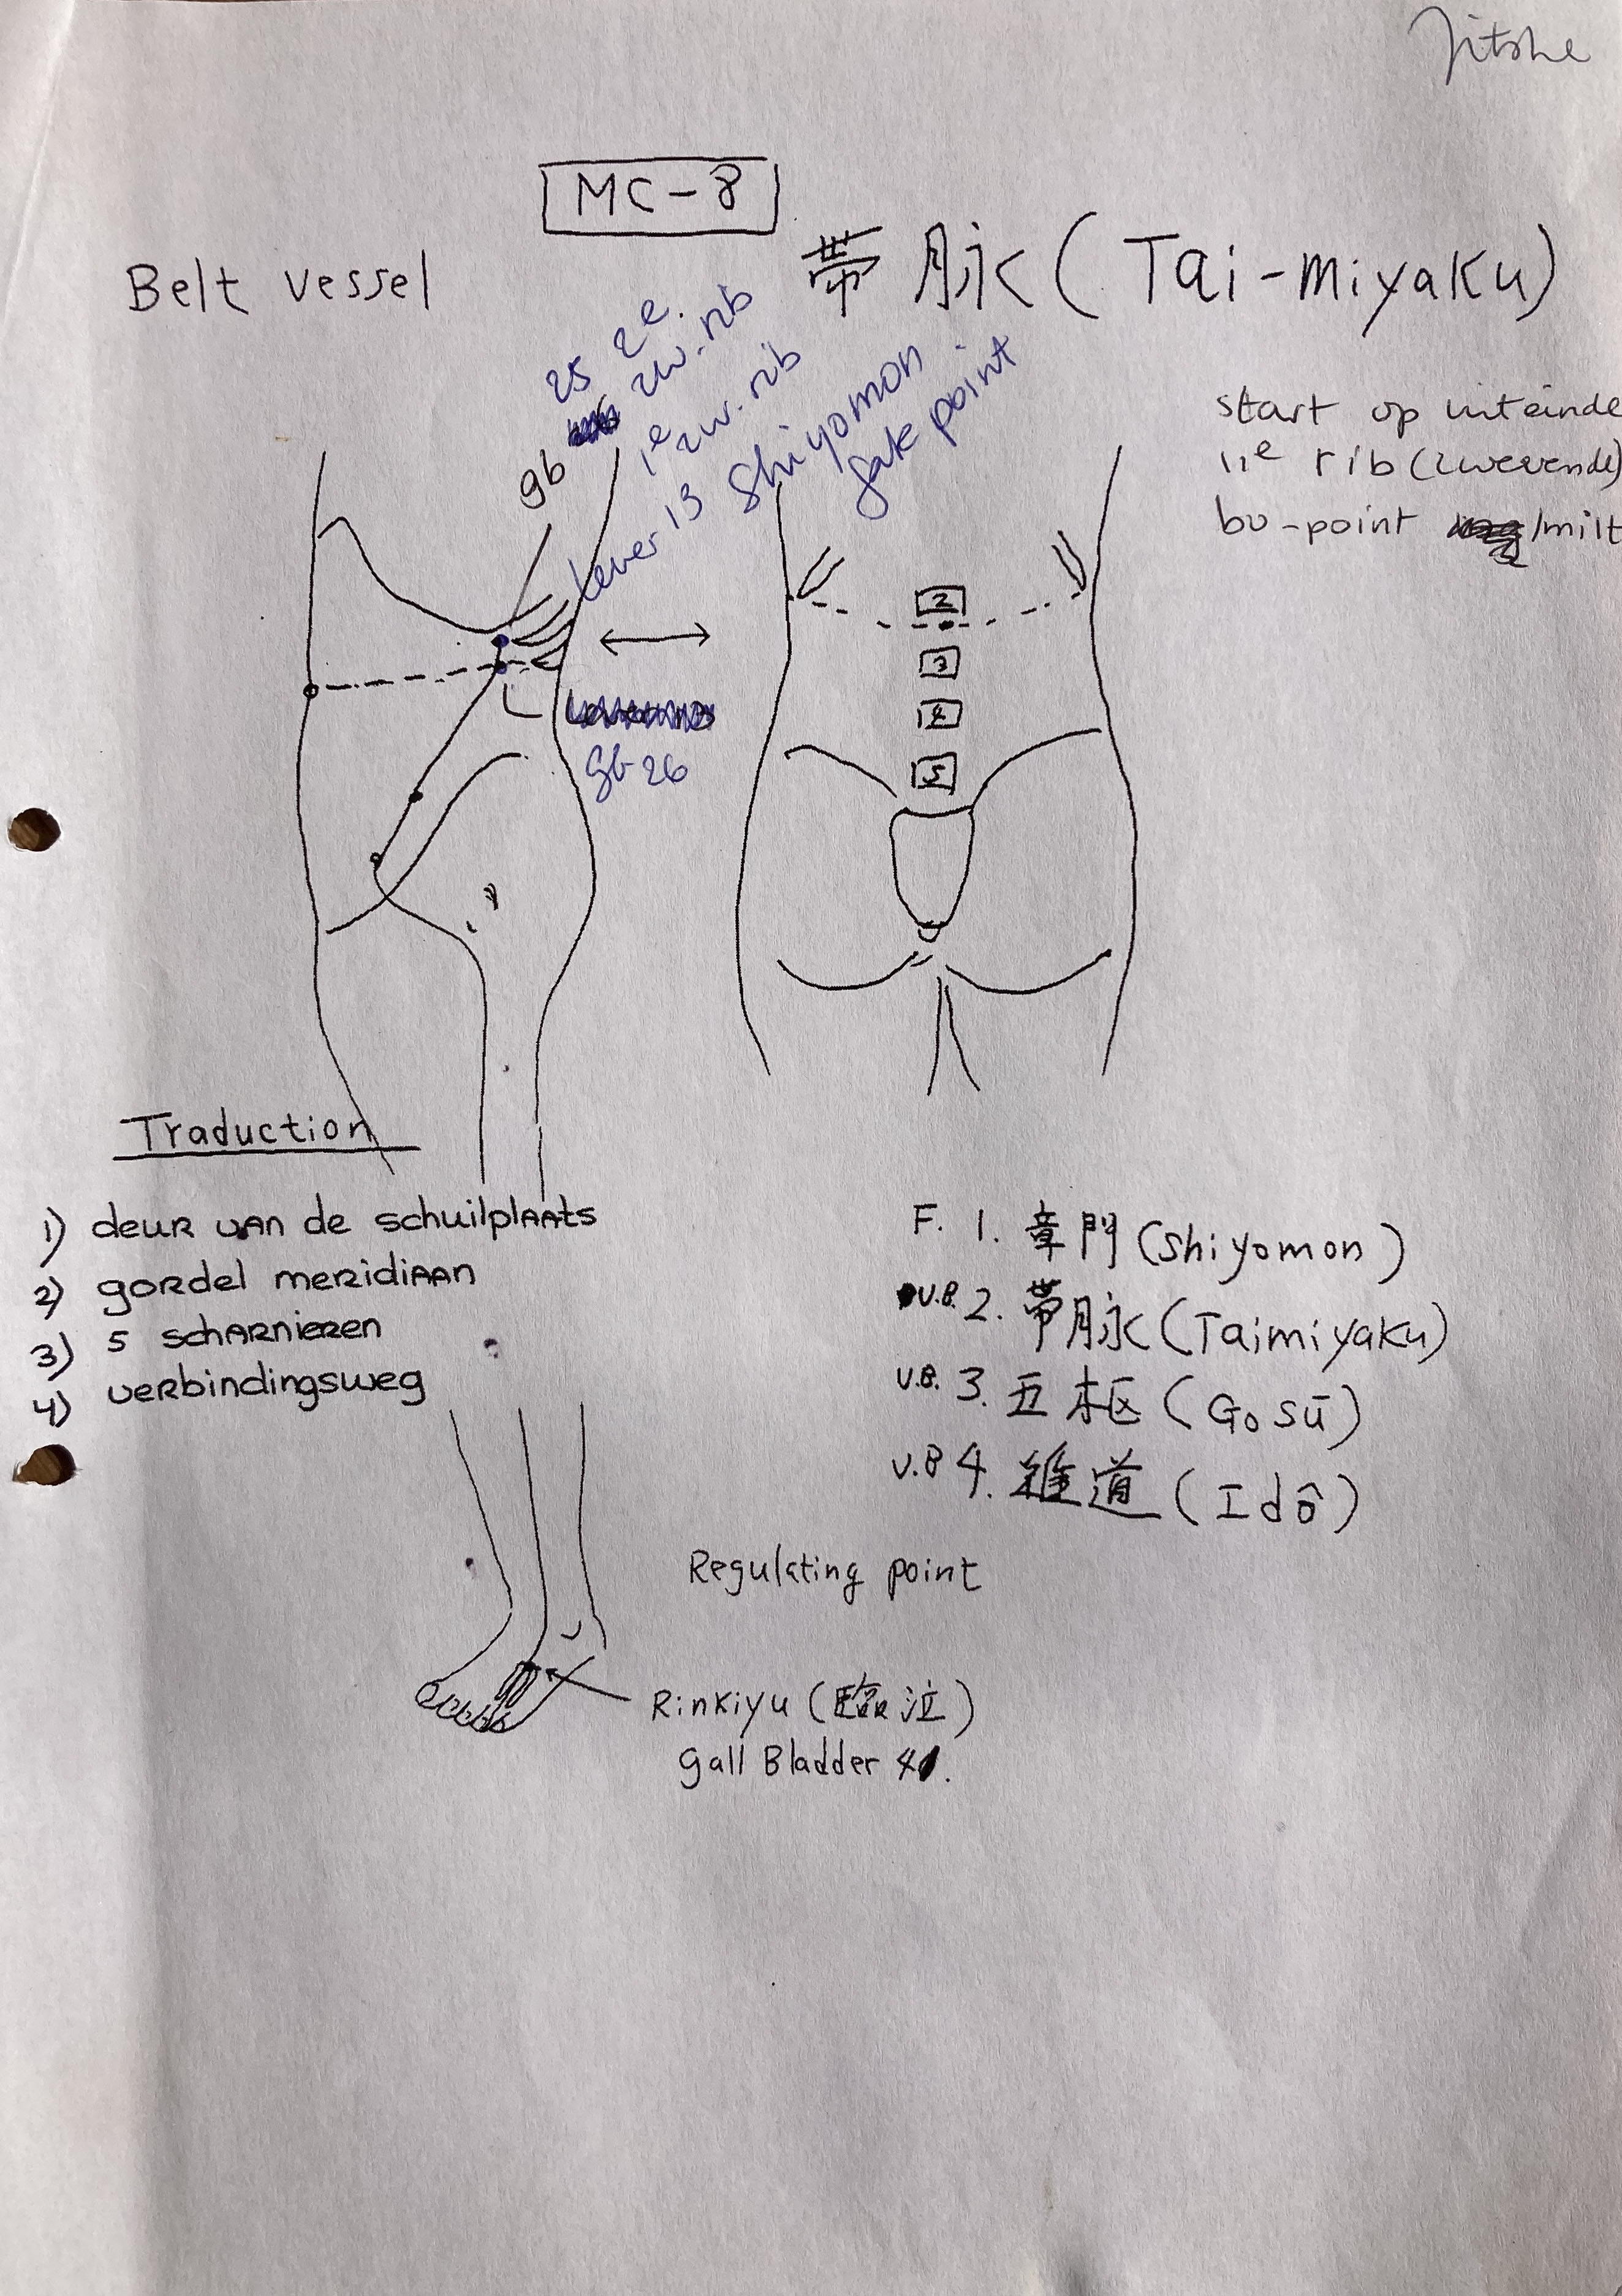 Jitske
MC-8
Belt vessel
帯脉 (Tai-miyaku)
start op uiteinde
11e rib (zwevende)
bo-point /milt
gb 25 2e. zw. rib
1e zw. rib
Lever 13 Shiyomon
gate point
gb 26
2
3
4
5
Traduction
1) deur van de schuilplaats
2) gordel meridiaan
3) 5 scharnieren
4) verbindingsweg
F. 1. 章門 (Shiyomon)
V.B. 2. 帯脉 (Taimiyaku)
V.B. 3. 五枢 (Gosū)
V.B 4. 維道 (Idô)
Regulating point
Rinkiyu (臨泣)
gall Bladder 41.